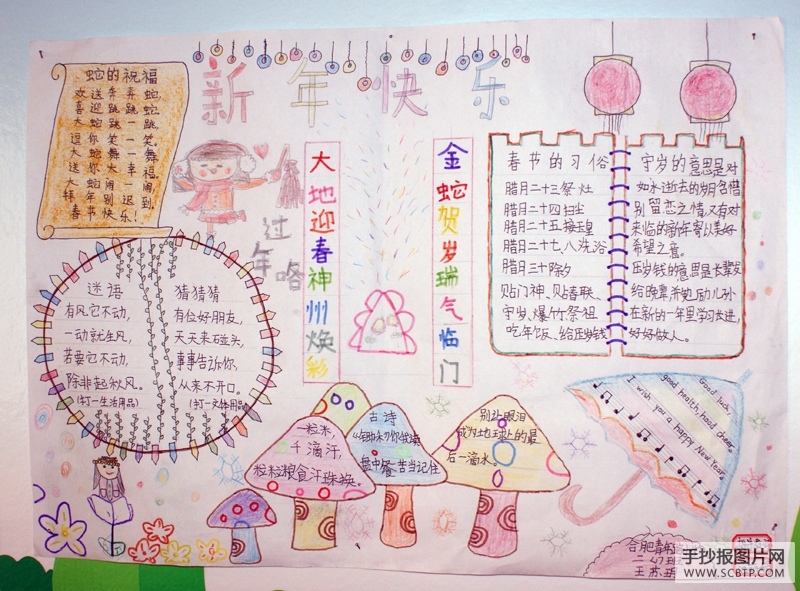 新年快乐
蛇的祝福
欢送奔奔蛇,
喜迎跳跳蛇,
大蛇跳一跳,
逗你笑一笑。
大蛇舞一舞
送你大幸福
大蛇闹一闹
拜年别迟到,
春节快乐!
过年咯
大地迎春神州焕彩
金蛇贺岁瑞气临门
春节的习俗
腊月二十三祭灶
腊月二十四扫尘
腊月二十五接玉皇
腊月二十七、八洗浴
腊月三十除夕
贴门神、贴春联、
守岁、爆竹祭祖
吃年饭、给压岁钱
守岁的意思是对
如水逝去的岁月含惜
别留恋之情,又有对
来临的新年寄以美好
希望之意。
压岁钱的意思是长辈发
给晚辈并勉励儿孙
在新的一年里学习长进,
好好做人。
谜语
有风它不动,
一动就生风,
若要它不动,
除非起秋风。
(打一生活用品)
猜猜猜
有位好朋友,
天天来碰头,
事事告诉你,
从来不开口。
(打一文体用品)
一粒米,
千滴汗,
粒粒粮食汗珠换。
古诗
盘中餐苦当记住
别让眼泪
成为地球上的最
后一滴水。
Good luck,
good health, hood cheer.
I wish you a happy New Year.
合肥
手抄报图片网
WWW.SCBTP.COM